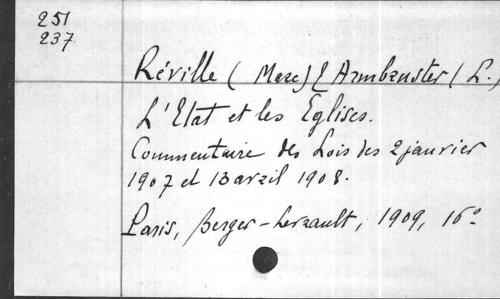 251
237
Réville (Marc) & Armbruster (L.)
L'Etat et les Eglises.
Commentaire des Lois des 2 janvier
1907 et 13 avril 1908.
Paris, Berger-Levrault, 1909, 16°